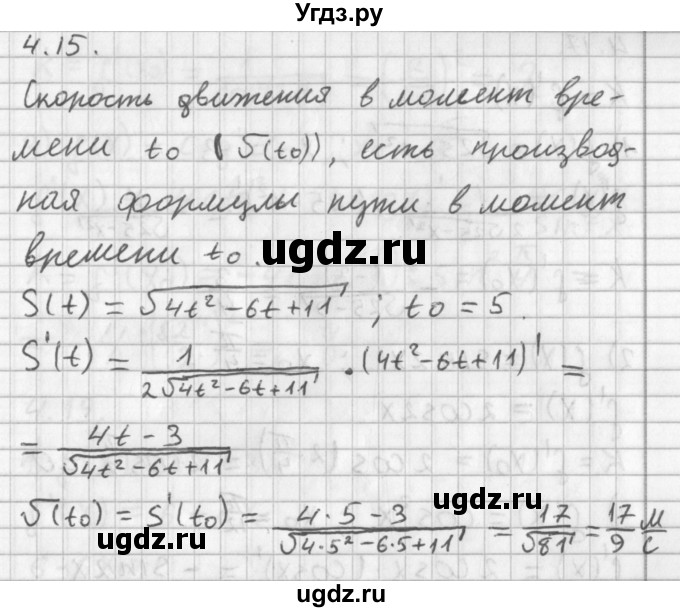 Угдз.ру
4.15.
Скорость движения в момент вре-
мени t₀ (υ(t₀)), есть производ-
ная формулы пути в момент
времени t₀.
ugdz.ru
ugdz.ru
S(t) = √(4t² - 6t + 11) ; t₀ = 5.
S'(t) = 1/(2√(4t² - 6t + 11)) · (4t² - 6t + 11)' =
= (4t - 3)/√(4t² - 6t + 11)
ugdz.ru
υ(t₀) = S'(t₀) = (4·5 - 3)/√(4·5² - 6·5 + 11) = 17/√81 = 17/9 м/с
ugdz.ru
ugdz.ru